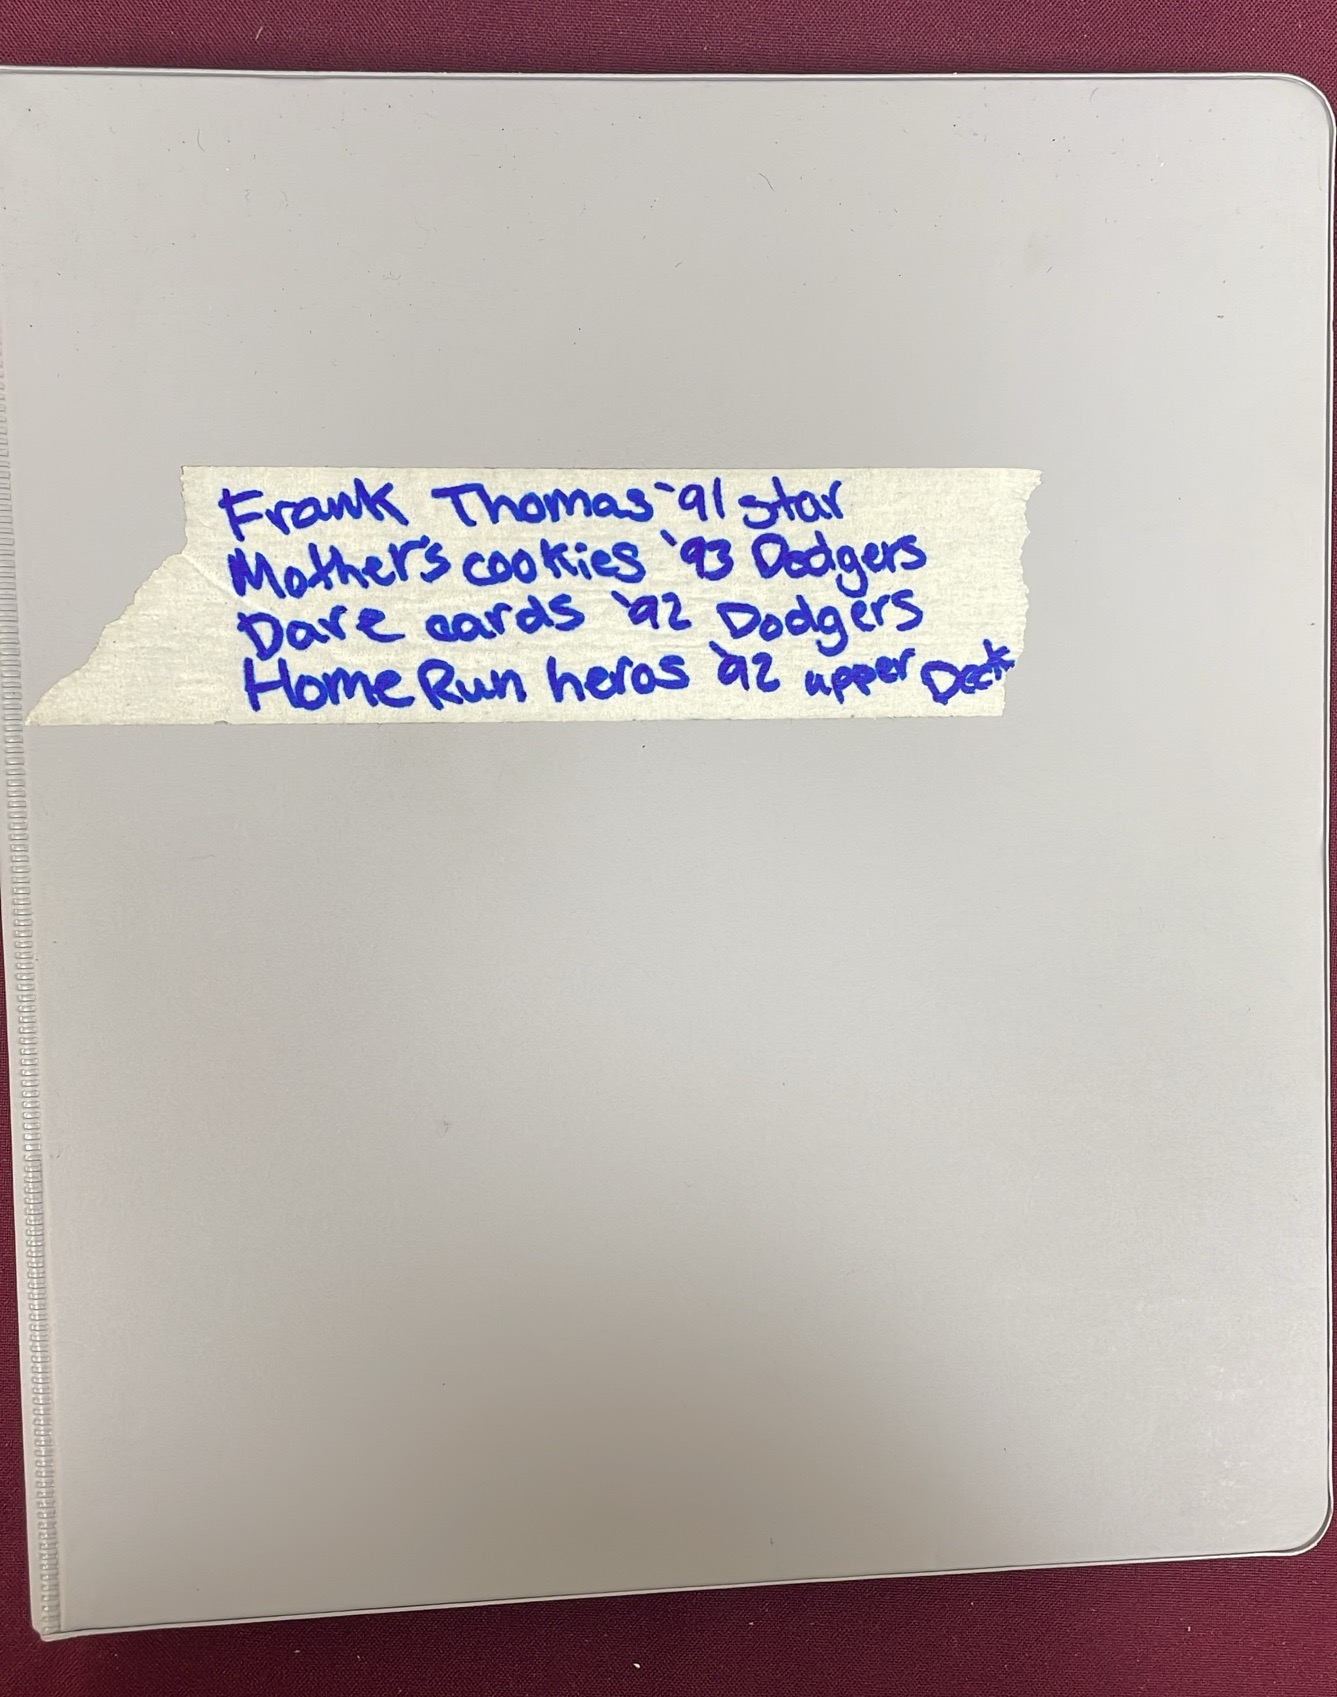 Frank Thomas '91 star
Mother's cookies '93 Dodgers
Dare cards '92 Dodgers
Home Run heros '92 upper Deck